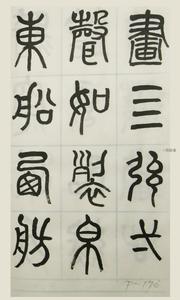 畫四弦一
聲如裂帛
東船西舫